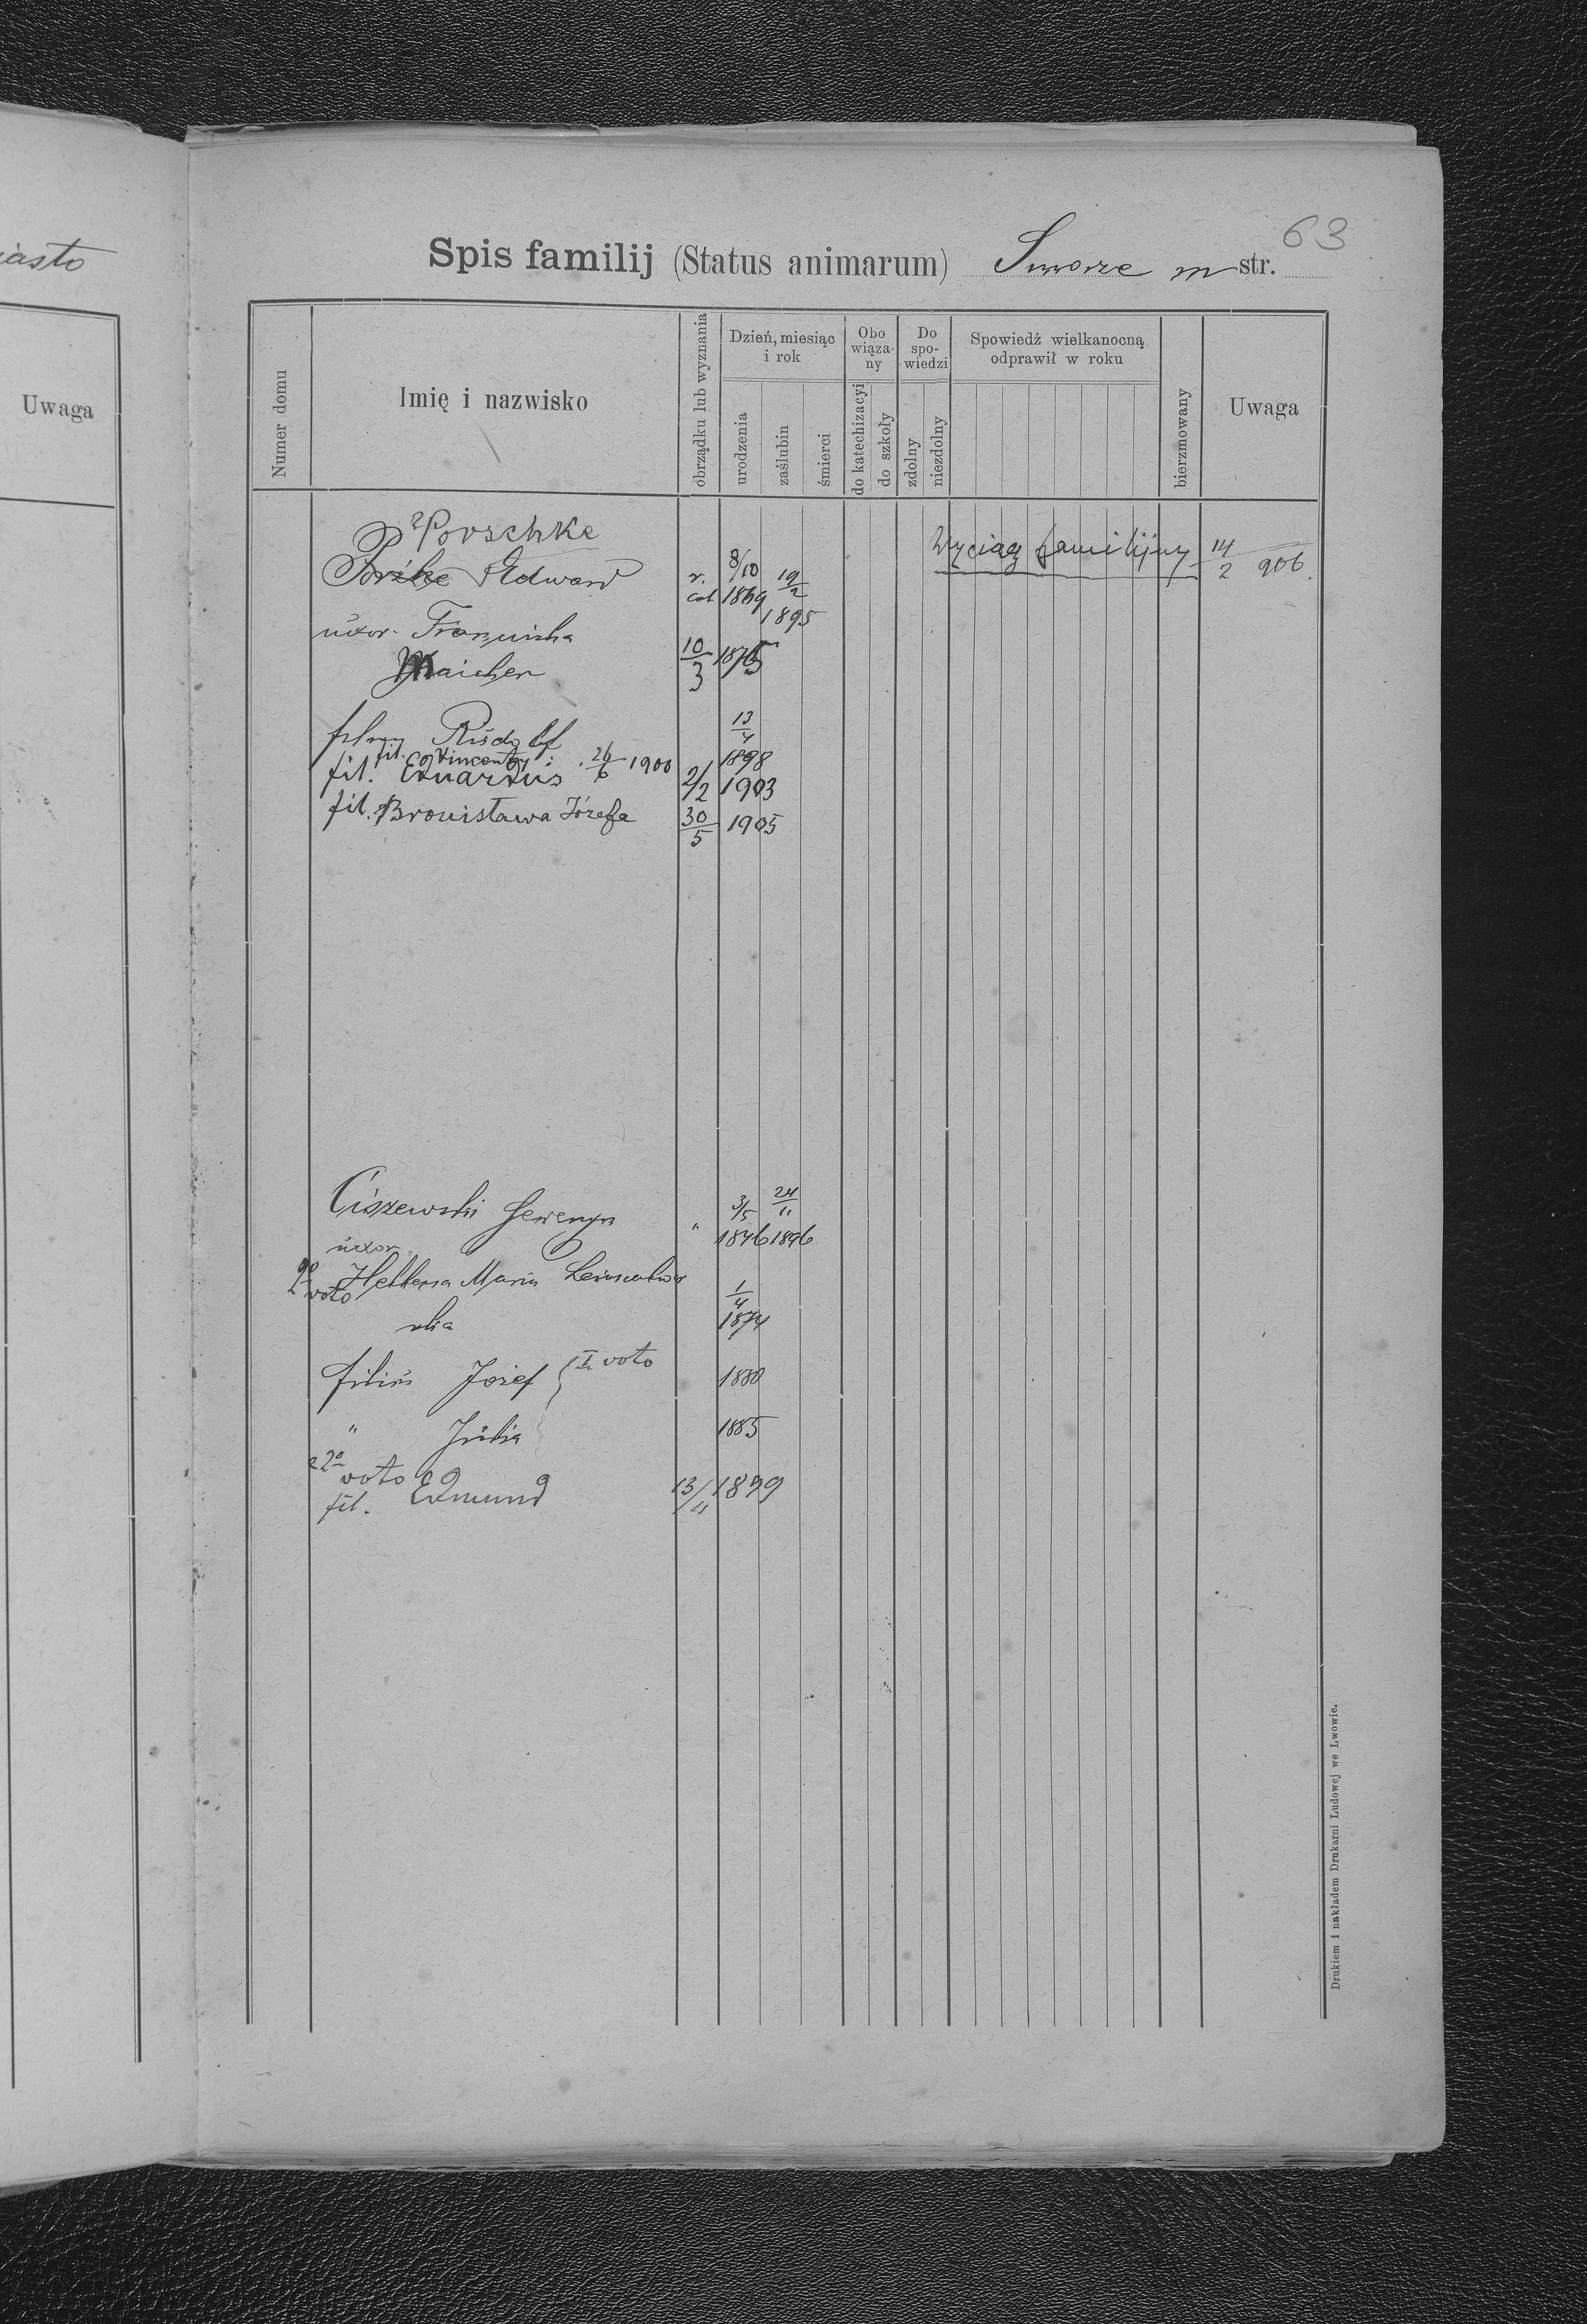 iasto
Uwaga
63
Spis familij (Status animarum) Smorze m str.
Numer domu
Imię i nazwisko
obrządku lub wyznania
Dzień, miesiąc i rok
urodzenia
zaślubin
śmierci
Obo wiąza- ny
do katechizacyi
do szkoły
Do spo- wiedzi
zdolny
niezdolny
Spowiedź wielkanocną odprawił w roku
bierzmowany
Uwaga
Porschke
Edward r. cat 8/10 1869 19/2 1895
Wyciąg familijny 14/2 906.
uxor. Franciszka
Maicher 10/3 1875
Rudolf 13/4 1898
fil. Vincenty 26/6 1900
fil. Eduardus 2/2 1903
fil. Bronisława Józefa 30/5 1905
Ciszewski Seweryn " 3/5 1846 24/11 1896
uxor
2o voto Hellena Maria
ska 1/4 1874
filius Józef I voto 1880
" Julia 1885
2o voto
fil. Edmund 13/11 1899
Drukiem i nakładem Drukarni Ludowej we Lwowie.